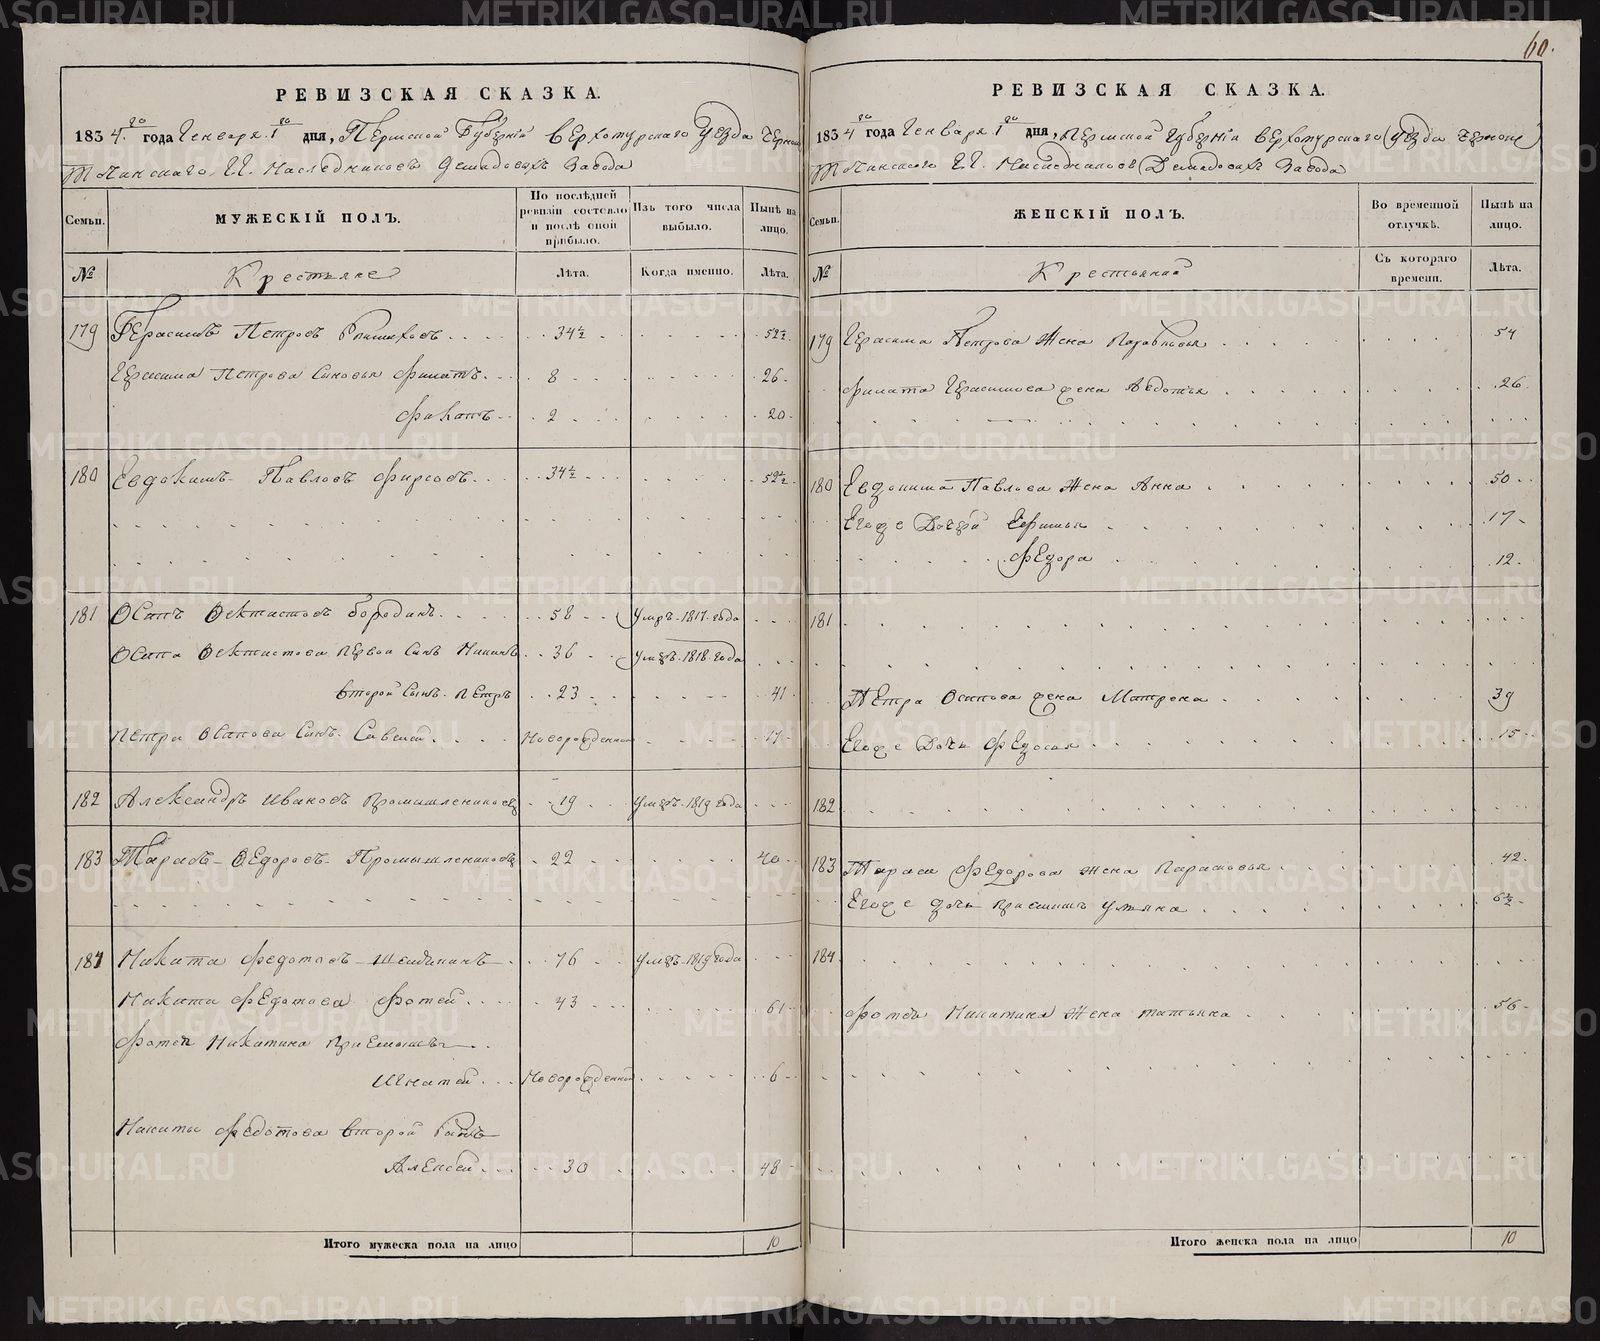 60.
РЕВИЗСКАЯ СКАЗКА.
1834го года Генваря 1го дня, Пермской Губернiи Верхотурского Уезда Черноис
точинского Г.Г. Наследниковъ Демидовыхъ Завода
Семьи.
МУЖЕСКIЙ ПОЛЪ.
По послѣдней ревизiи состояло и послѣ оной прибыло.
Изъ того числа выбыло.
Нынѣ на лицо.
№
Крестьяне
Лѣта.
Когда именно.
Лѣта.
179 Герасимъ Петровъ 34½ 52½
Герасима Петрова Сыновья Филатъ 8 26
2 20
180 Евдокимъ Павловъ Фирсовъ 34½ 52½
181 Осипъ Фектистовъ Бородинъ 58 Умръ 1817 года
Осипа Фектистова первой Сынъ 36 Умръ 1818 года
второй Сынъ Петръ 23 41
Петра Осипова Сынъ Савелей Новорожденной 17
182 Александръ Ивановъ Промышлениковъ 19 Умръ 1819 года
183 Тарасъ Федоровъ Промышлениковъ 22 40
184 Никита Федотовъ 76 Умръ 1819 года
Никиты Федотова Фотей 43 61
Фотея Никитина Приемышъ
Игнатей Новорожденной 6
Никиты Федотова второй Сынъ
Алексей 30 48
Итого мужеска пола на лицо 10
РЕВИЗСКАЯ СКАЗКА.
1834го года Генваря 1го дня, Пермской Губернiи Верхотурского Уезда Черноис
точинского Г.Г. Наследниковъ Демидовыхъ Завода
Семьи.
ЖЕНСКIЙ ПОЛЪ.
Во временной отлучкѣ.
Нынѣ на лицо.
№
Крестьянки
Съ котораго времени.
Лѣта.
179 Герасима Петрова Жена 54
Филата Герасимова жена Авдотья 26
180 Евдокима Павлова Жена Анна 50
Егоже Дочери 17
Федора 12
181
Петра Осипова жена Матрена 39
Егоже Дочь Федосья 15
182
183 Тараса Федорова жена Парасковья 42
Егоже дочь приемышъ Ульяна 6½
184
Фотея Никитина Жена татьяна 56
Итого женска пола на лицо 10
METRIKI.GASO-URAL.RU